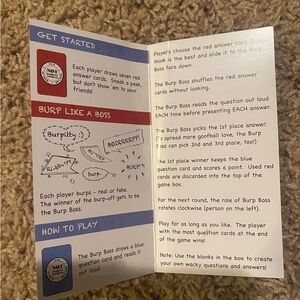 GET STARTED
Each player draws seven red
answer cards. Sneak a peek,
but don't show 'em to your
friends!
BURP LIKE A BOSS
Burpility :)
BOIRRRRPP!
BURP!
burp.
Each player burps - real or fake.
The winner of the burp-off gets to be
the Burp Boss.
HOW TO PLAY
The Burp Boss draws a blue
question card and reads it
out loud.
Players choose the red answer card
think is the best and slide it to the Burp
Boss face down.
The Burp Boss shuffles the red answer
cards without looking.
The Burp Boss reads the question out loud
EACH time before presenting EACH answer.
The Burp Boss picks the 1st place answer.
spread more goofball love, the Burp
Boss can pick 2nd and 3rd place, too!)
The 1st place winner keeps the blue
question card and scores a point. Used red
cards are discarded into the top of the
game box.
For the next round, the role of Burp Boss
rotates clockwise (person on the left).
Play for as long as you like. The player
with the most question cards at the end
of the game wins!
Note: Use the blanks in the box to create
your own wacky questions and answers!